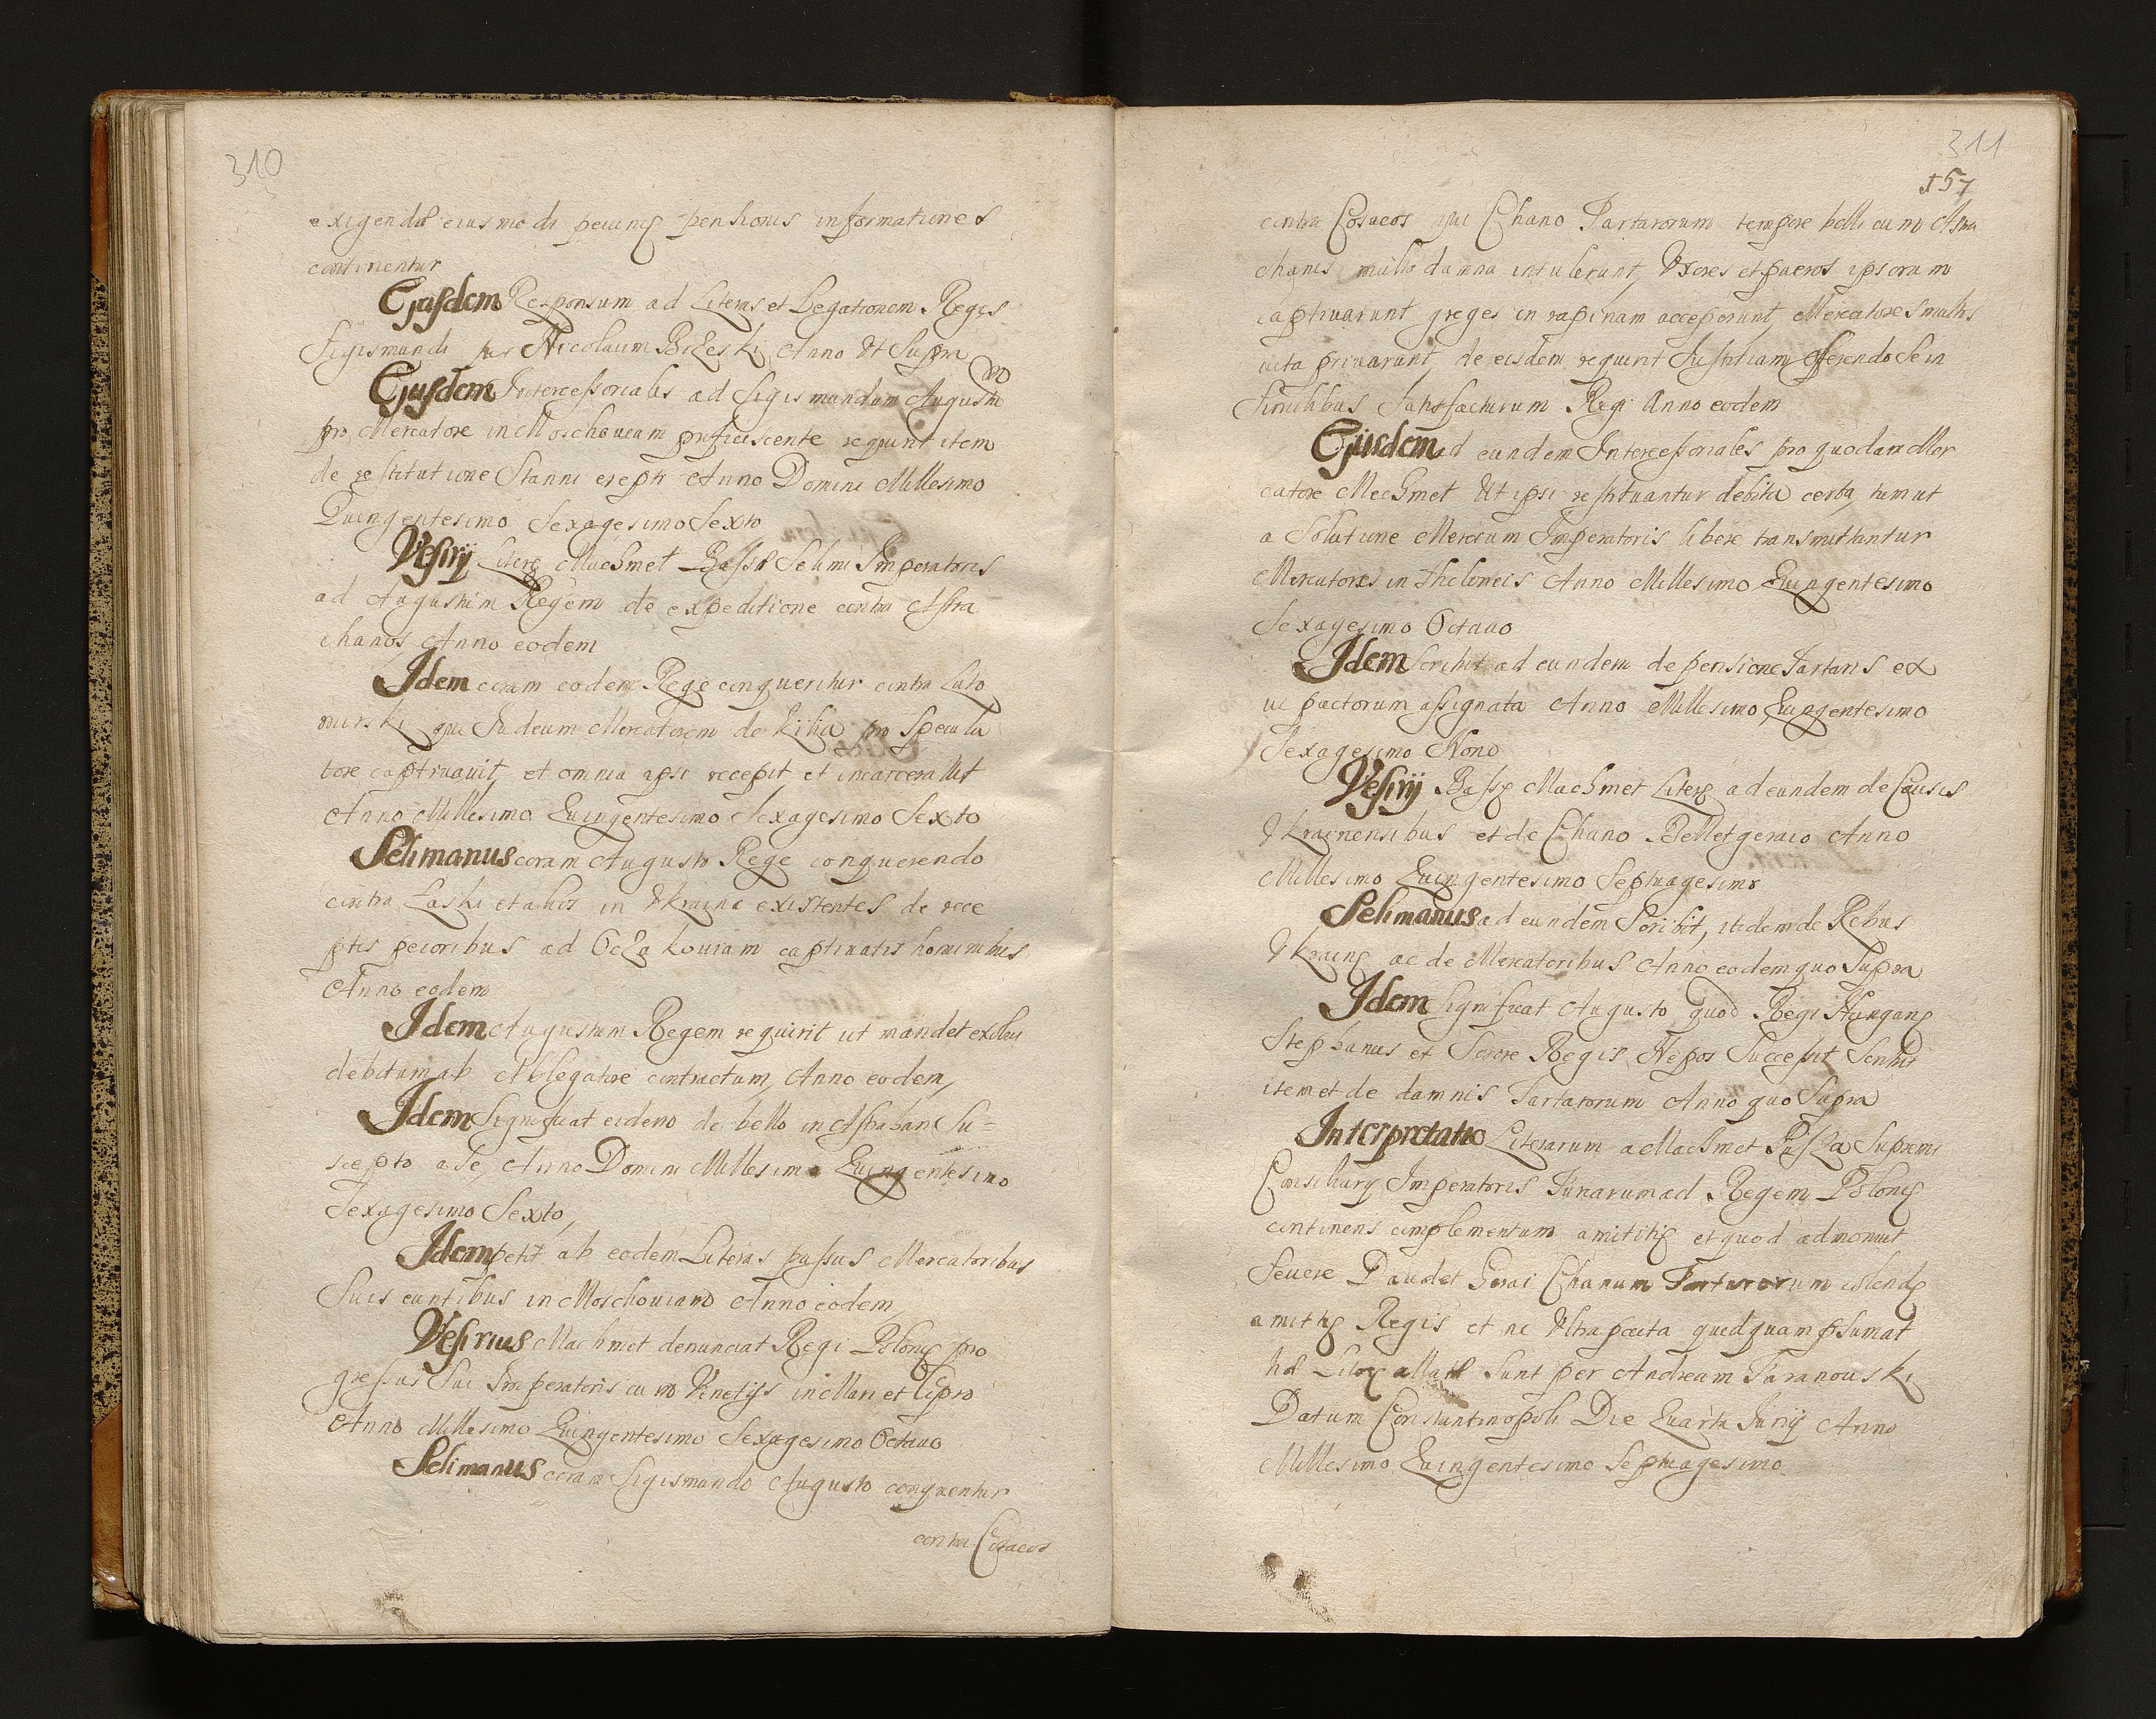 310
exigenda eiusmodi pecunię pensionis informationes
continentur
Ejusdem Responsum ad Literas et Legationem Regis
Sigismundi per Nicolaum Bzeski Anno Ut Supra
Ejusdem Intercessoriales ad Sigismundum Augustum
pro Mercatore in Moschouiam proficiscente requirit item
de restitutione Stanni erepti Anno Domini Millesimo
Quingentesimo Sexagesimo Sexto
Vesirij Literę Machmet Bassa Selimi Imperatoris
ad Augustum Regem de expeditione contra Astra
chanos Anno eodem
Idem coram eodem Rege conqueritur contra Lato
mirski qui Judeum Mercatorem de Kilia pro Specula
tore captiuauit, et omnia ipsi recepit et incarcerauit
Anno Millesimo Quingentesimo Sexagesimo Sexto
Selimanus coram Augusto Rege conquerendo
contra Laski et alios in Ukraina existentes de rece
ptis pecoribus ad Oczakouiam captiuatis hominibus
Anno eodem
Idem Augustum Regem requirit ut mandet exolui
debitum ab Ablegatore contractum, Anno eodem,
Idem Significat eidem de bello in Astrahan Su=
scepto a Se, Anno Domini Millesimo Quingentesimo
Sexagesimo Sexto,
Idem petit ab eodem Literas passus Mercatoribus
Suis euntibus in Moschouiam Anno eodem,
Vesirius Machmet denunciat Regi Polonię pro
gressus Sui Imperatoris cum Venetijs in Mari et Cipro
Anno Millesimo Quingentesimo Sexagesimo Octauo
Selimanus coram Sigismundo Augusto conqueritur
contra Cosacos
311
157
contra Cosacos qui Chano Tartarorum tempore belli cum Astra
chanis multa damna intulerunt, Uxores et pueros ipsorum
captiuarunt greges in rapinam acceperunt, Mercatores multos
uita priuarunt, de eisdem requirit Justitiam offerendo Se in
Similibus Satisfacturum Regi Anno eodem
Ejusdem ad eundem Intercessoriales pro quodam Mer
catore Mechmet Ut ipsi restituantur debita certa, tum ut
a Solutione Mercium Imperatoris libere transmittantur
Mercatores in theloneis Anno Millesimo Quingentesimo
Sexagesimo Octauo
Idem Scribit ad eundem de pensione Tartaris ex
ui pactorum assignata Anno Millesimo Quingentesimo
Sexagesimo Nono
Vesirij Bassę Machmet Literę ad eundem de Causis
Ukrainensibus et de Chano Dewletgeraio Anno
Millesimo Quingentesimo Septuagesimo
Selimanus ad eundem Scribit, itidem de Rebus
Ukrainę ac de Mercatoribus Anno eodem quo Supra
Idem Significat Augusto quod Regi Hungarię
Stephanus et Sorore Regis Nepos Successit Scribit
item et de damnis Tartarorum Anno quo Supra
Interpretatio Literarum a Machmet Basza Supremi
Consiliarij Imperatoris Turcarum ad Regem Polonię
continens complementum amicitię et quod admonuit
Seuere Dauclet Gerai Chanum Tartarorum colendę
amicitię Regis et ne Ultra pacta quidquam pręsumat
hae Literę allatę Sunt per Andream Taranouski
Datum Constantinopoli Die Quarta Junij Anno
Millesimo Quingentesimo Septuagesimo